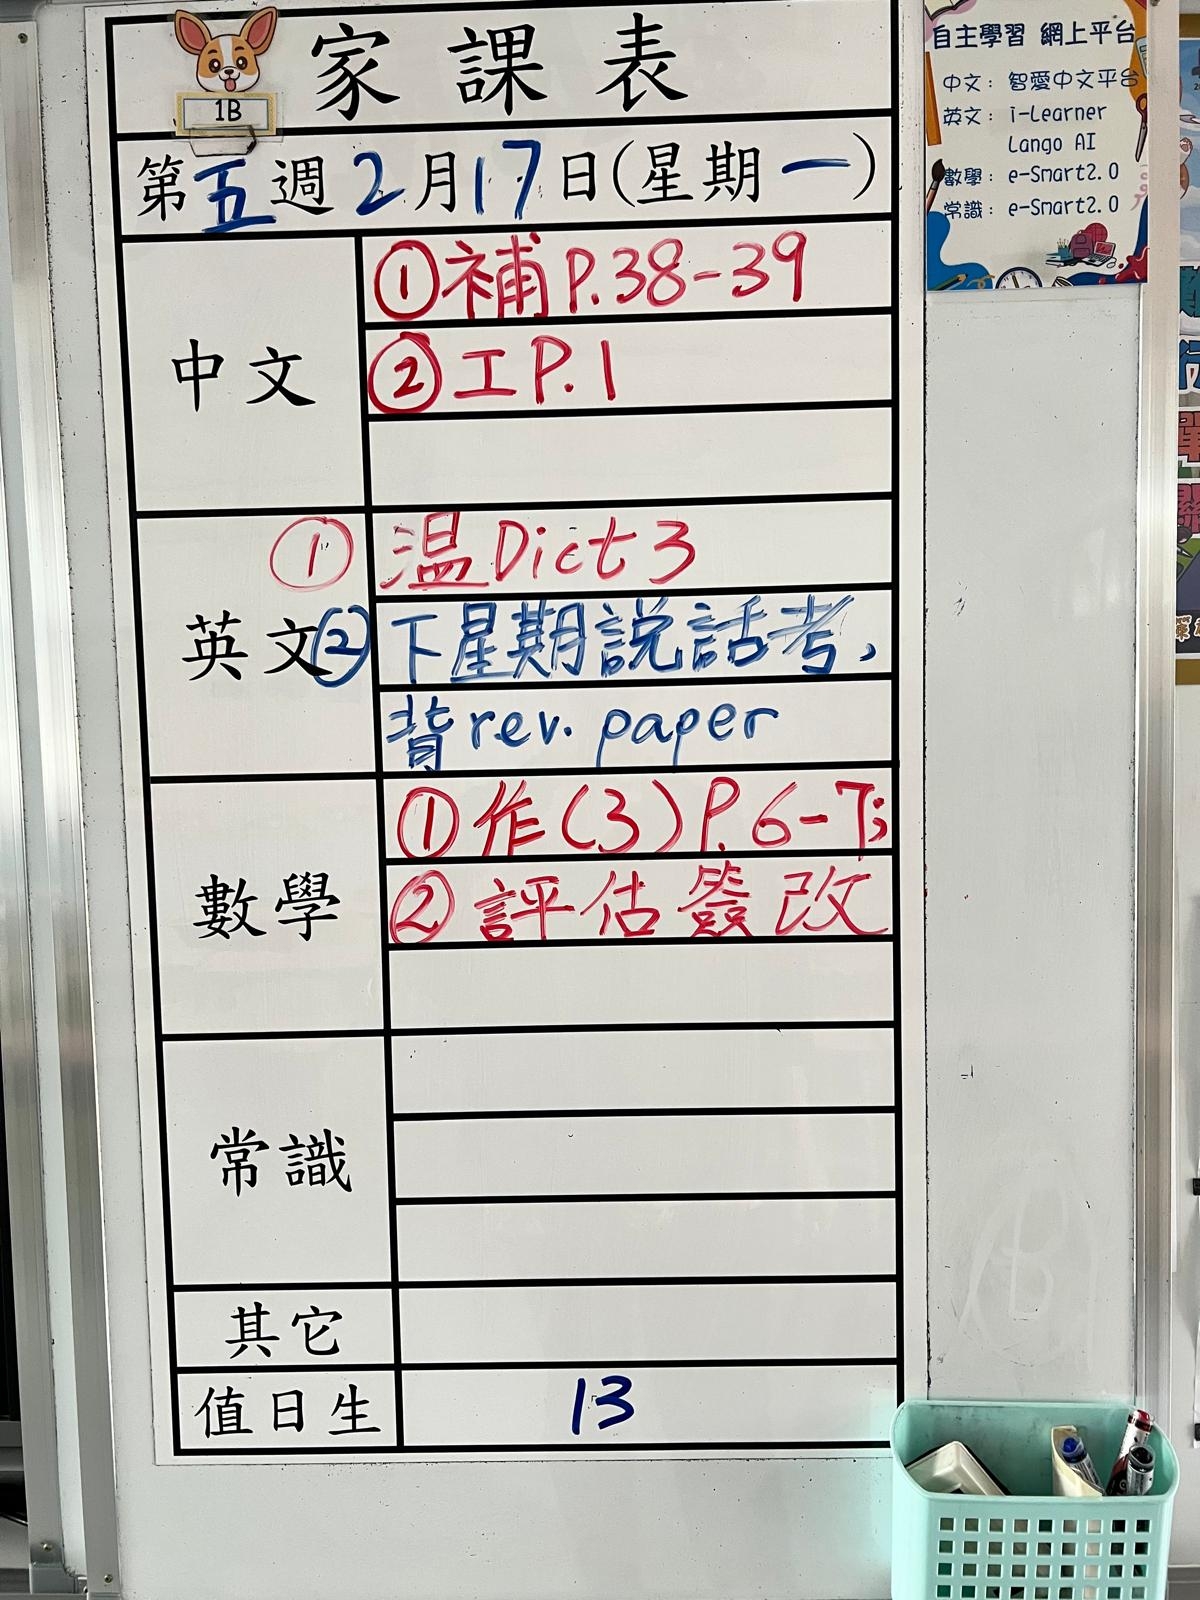 家課表
1B
第五週2月17日(星期一)
中文
①補P.38-39
②工P.1
英文
①溫Dict 3
②下星期説話考,
背rev. paper
數學
①作(3)P.6-7;
②評估簽改
常識
其它
值日生
13
自主學習 網上平台
中文：智愛中文平台
英文：i-Learner
Lango AI
數學：e-Smart2.0
常識：e-Smart2.0